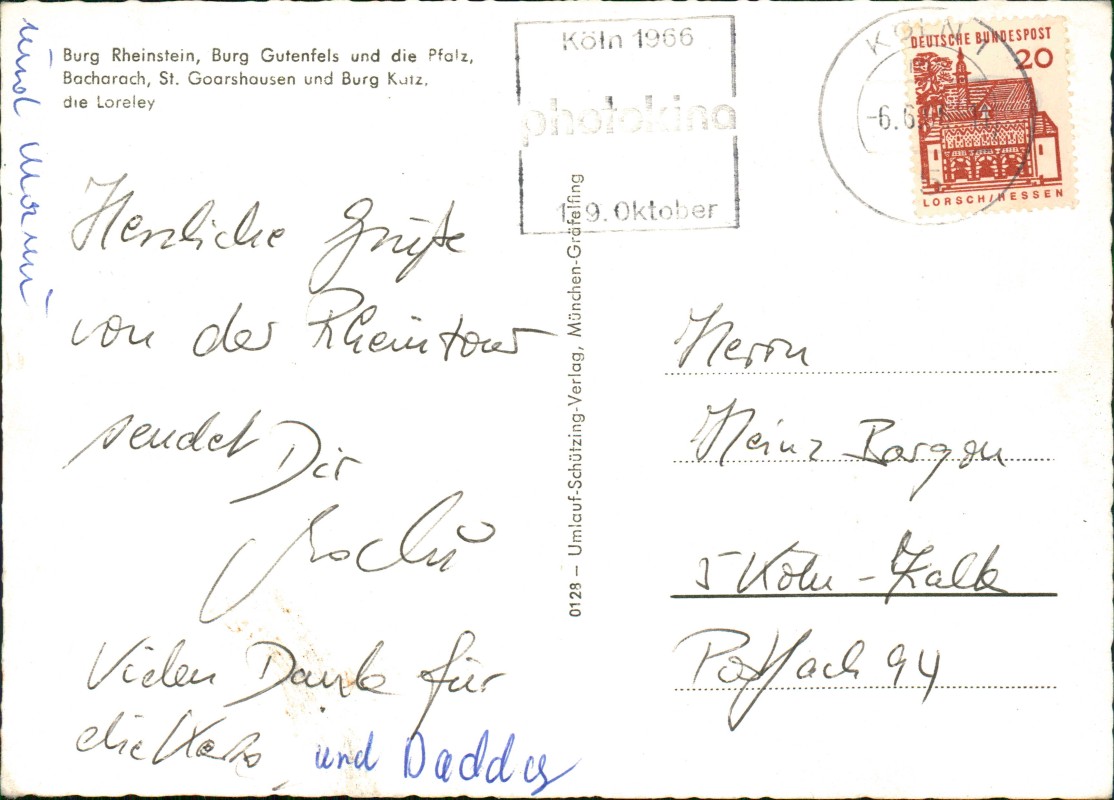 Burg Rheinstein, Burg Gutenfels und die Pfalz,
Bacharach, St. Goarshausen und Burg Katz,
die Loreley
und Mammi
Herzliche Grüße
von der Rheintour
sendet Dir
Vielen Dank für
die Karte
und Daddy
0128 – Umlauf-Schützing-Verlag, München-Gräfelfing
Köln 1966
photokina
1.-9. Oktober
KÖLN 1
-6.6
DEUTSCHE BUNDESPOST
20
LORSCH/HESSEN
Herrn
Heinz Bargon
5 Köln-Kalk
Postfach 94